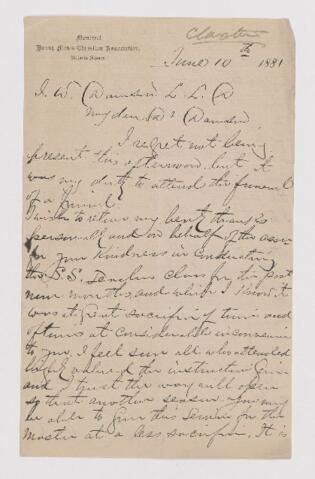 Claxton
Montreal
Young Men's Christian Association,
June 10th 1881
J. W. Dawson L. L. D
My dear Dr Dawson
I regret not being
present this afternoon, but it
was my duty to attend the funeral
of a friend.
I wish to return my best thanks
personally and on behalf of the assn
for your kindness in conducting
the S. S. Teachers class for the past
nine months, and which I know it
was at great sacrifice of time and
often at considerable inconvenience
to you. I feel sure all who attended
valued the instruction given
and I trust the way will open
so that another season you may
be able to give this service for the
Master at a less sacrifice. It is